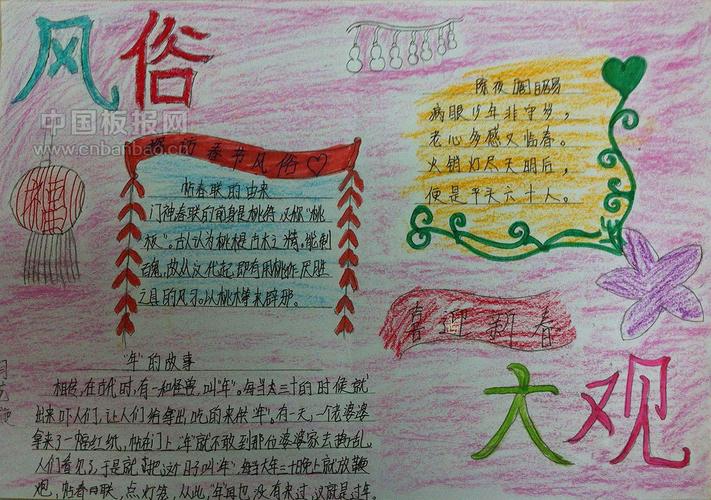 风俗
中国板报网
www.cnbanbao.cn
探访春节风俗
贴春联的由来
门神春联的前身是桃符又称"桃
板"。古人认为桃木是百木之精,能制
百鬼,故从汉代起,即有用桃作厌胜
之具的风习。以桃木等来辟邪。
"年"的故事
相传,在古代时,有一种怪兽,叫"年"。每当大三十的时候就
出来吓人们,让人们给拿出吃的来供"年"。有一天,一个老婆婆
拿来了一幅红纸,帖在门上,年就不敢到那位婆婆家去捣乱,
人们看见了,于是就把这个日子叫"年"每到大年三十晚上就放鞭
炮,帖春联,点灯笼,从此,"年"再也没有来过,这就是过年。
除夜 周昭易
病眼少年非守岁,
老心多感又临春。
火销灯尽天明后,
便是平头六十人。
喜迎新春
大观